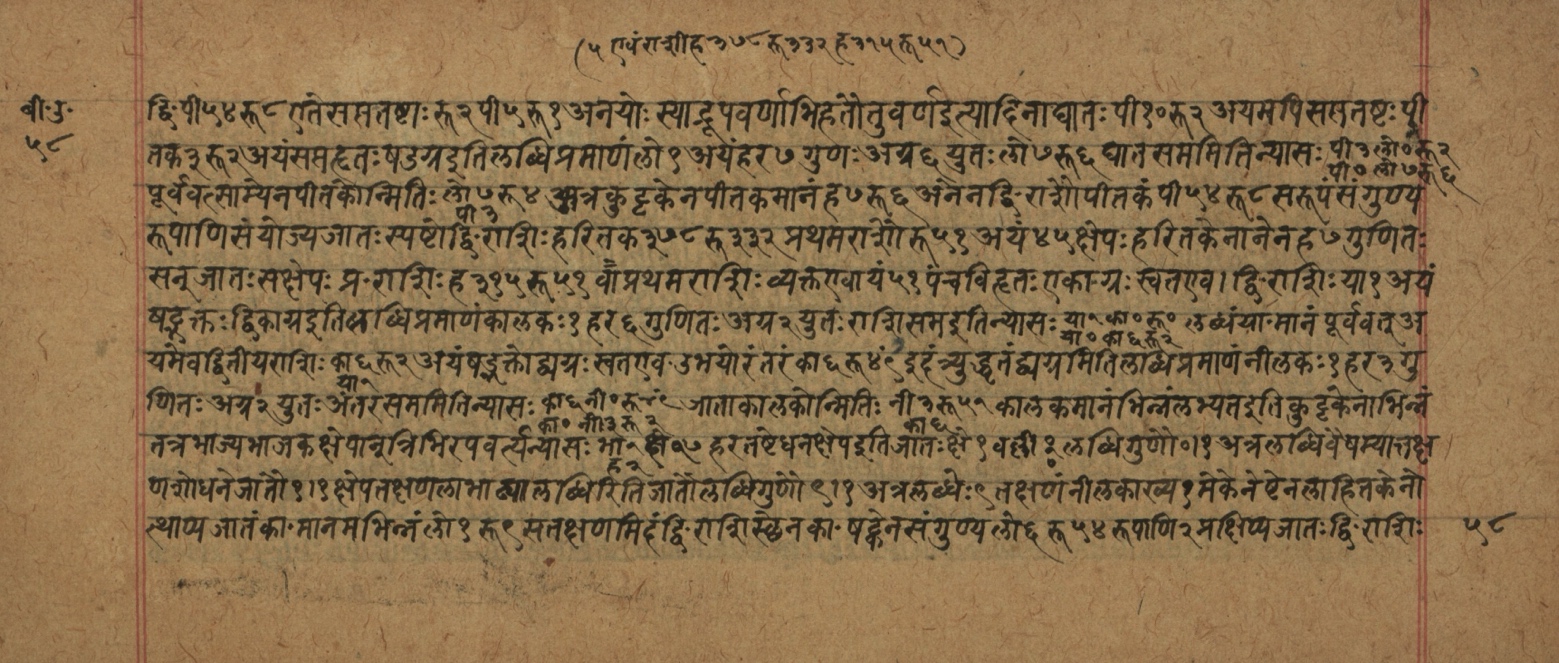 (५ एवं राशी ह ३७८ रू ३३२ ह ३१५ रू ५१)
बी॰उ॰
५८
द्वि॰पी५४रू८एतेसप्ततष्टाःरू२पी५रू१अनयोःस्याद्रूपवर्णाभिहतौतुवर्णइत्यादिनाघातःपी१०रू२अयमपिसप्ततष्टःपी
तक३रू२अयंसप्तहृतःषडग्रइतिलब्धिप्रमाणंलो१अयंहर७गुणःअग्र६युतःलो७रू६घातसममितिन्यासःपी३लो०रू२
पी०लो७रू६
पूर्ववत्साम्येनपीतकोन्मितिःलो७रू४अत्रकुट्टकेनपीतकमानंह७रू६अनेनद्वि॰राशौपीतकंपी५४रू८सरूपंसंगुण्य
पी३
रूपाणिसंयोज्यजातःस्पष्टोद्वि॰राशिःहरितक३७८रू३३२प्रथमराशौरू५१अयं४५क्षेपःहरितकेनानेनह७गुणितः
सन्जातःसक्षेपःप्र॰राशिःह३१५रू५१वाप्रथमराशिःव्यक्तएवायं५१पंचविहृतःएकाग्रःस्वतएव।द्वि॰राशिःया१अयं
षड्भक्तःद्विकाग्रइतिलब्धिप्रमाणंकालकः१हर६गुणितःअग्र२युतःराशिसमइतिन्यासःया१का०रू०लब्धंया॰मानंपूर्ववत्अ
या०का६रू२
यमेवद्वितीयराशिःका६रू२अयंषड्भक्तोद्व्यग्रःस्वतएव॰उभयोरंतरंका६रू४९इदंत्र्युद्धृतंद्व्यग्रमितिलब्धिप्रमाणंनीलकः१हर३गु
या१
णितःअग्र२युतःअंतरसममितिन्यासःका६नी०रू४९जाताकालकोन्मितिःनी३रू५१कालकमानंभिन्नंलभ्यतइतिकुट्टकेनाभिन्नं
का०नी३रू२
का६
तत्रभाज्यभाजकक्षेपान्त्रिभिरपवर्त्यन्यासःभा१क्षे१७हरतष्टेधनक्षेपइतिजातःक्षे१वल्ली१लब्धिगुणौ०।१अत्रलब्धिवैषम्यात्तक्ष
ह२
णशोधनेजातौ१।१क्षेपतक्षणलाभाढ्यालब्धिरितिजातौलब्धिगुणौ९।१अत्रलब्धेः९तक्षणंनीलकाख्य१मेकेनेष्टेनलोहितकेनो
त्थाप्यजातंका॰मानमभिन्नंलो१रू९सतक्षणमिदंद्वि॰राशिस्थेनका॰षट्केनसंगुण्यलो६रू५४रूपाणि२प्रक्षिप्यजातःद्वि॰राशिः
५८